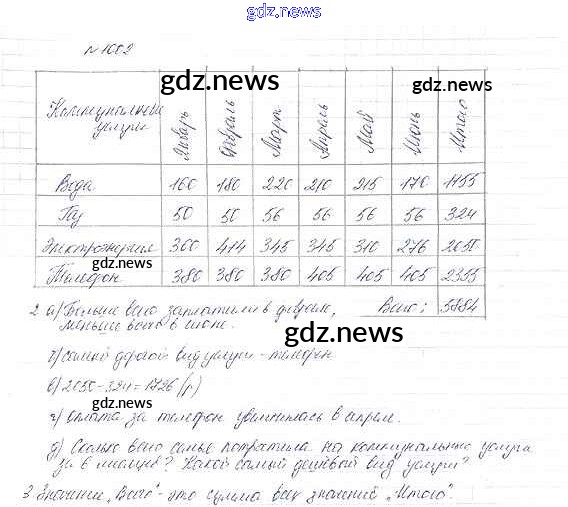 gdz.news
№1002
gdz.news
gdz.news
Коммунальные услуги Январь Февраль Март Апрель Май Июнь Итого
Вода 160 180 220 210 215 170 1155
Газ 50 50 56 56 56 56 324
Электроэнергия 300 414 345 345 310 276 2050
gdz.news
Телефон 380 380 380 405 405 405 2355
2 а) Больше всего заплатили в феврале, Всего: 5884
меньше всего в июне.
gdz.news
б) самый дорогой вид услуги - телефон
в) 2050-324=1726 (р)
gdz.news
г) оплата за телефон увеличилась в апреле.
д) Сколько всего семья потратила на коммунальные услуги
за 6 месяцев? Какой самый дешёвый вид услуги?
3 Значение „Всего" - это сумма всех значений „Итого".
gdz.news